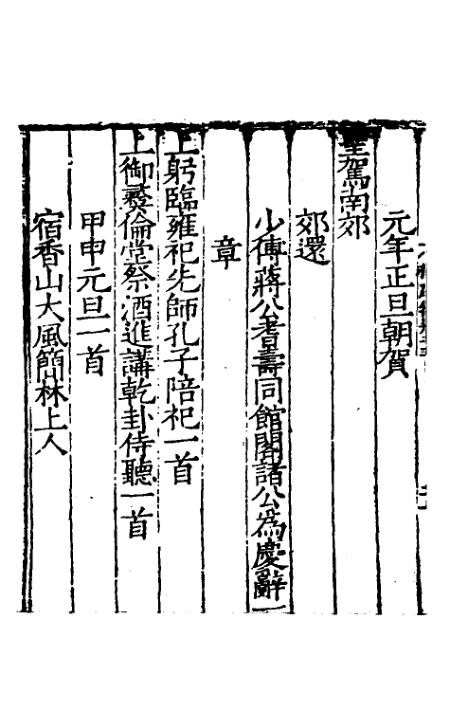 元年正旦朝賀
聖駕南郊
郊還
少傅蔣公耆壽同館閣諸公為慶辭一
章
上躬臨雍祀先師孔子陪祀一首
上御彞倫堂祭酒進講乾卦侍聽一首
甲申元旦一首
宿香山大風簡林上人